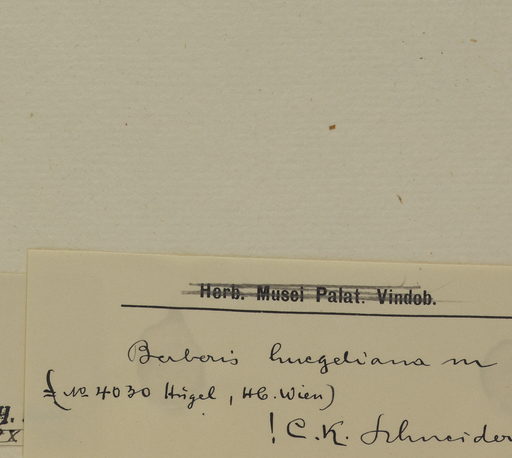 Herb. Musei Palat. Vindob.
Berberis huegeliana m
= (No 4030 Hügel, Hb. Wien)
! C. K. Schneider